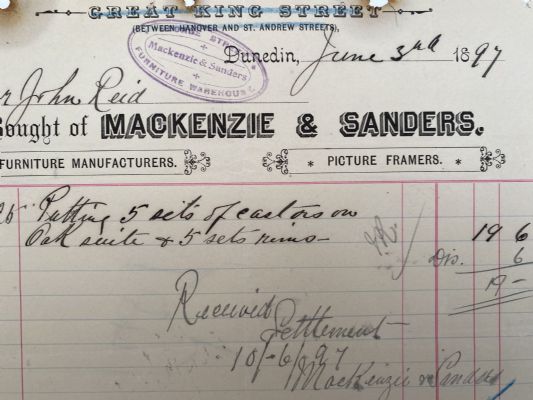 GREAT KING STREET
(BETWEEN HANOVER AND ST. ANDREW STREETS),
Mackenzie & Sanders
FURNITURE WAREHOUSE
Dunedin, June 3rd 1897
r John Reid
Bought of MACKENZIE & SANDERS.
FURNITURE MANUFACTURERS. * PICTURE FRAMERS. *
25 Putting 5 sets of castors on
Oak suite & 5 sets rims – 19 6
Dis. 6
19 –
Received
Settlement
10/-6/97
MacKenzie & Sanders